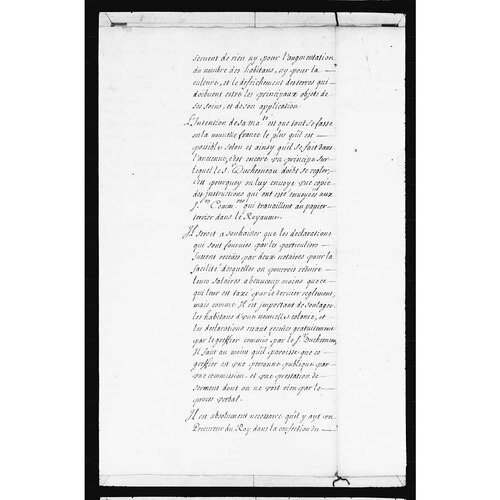 servent de rien ny pour l'augmentation
du nombre des habitans, ny pour la
culture, et le defrichement des terres qui
doibuent estre les principaux objets de
ses soins, et de son application.
L'Intention de sa ma.té est que tout se fasse
en la nouvelle france le plus qu'il est
possible selon et ainsy qu'il se fait dans
l'ancienne, c'est encore un principe sur
lequel le S.r Duchesneau doibt se regler,
c'en pourquoy on luy envoye une copie
des instructions qui ont esté envoyées aux
S.rs Comm.res qui travaillent au papier
terrier dans le Royaume.
Il seroit a souhaitter que les declarations
qui sont fournies par les particuliers
fussent receües, par deux notaires pour la
facilité desquelles on pourroit réduire
leurs salaires a beaucoup moins que ce
qui leur est taxé par le dernier reglement,
mais comme Il est important de soulager
les habitans d'une nouvelle colonie, et
les declarations estant receües gratuitement
par le greffier commis par le S.r Duchesneau
Il faut au moins qu'il paroisse que ce
greffier est une personne publique par
une commission, et une prestation de
serment dont on ne voit rien par le
proces verbal.
Il est absolument necessaire qu'il y ayt un
Procureur du Roy dans la confection du